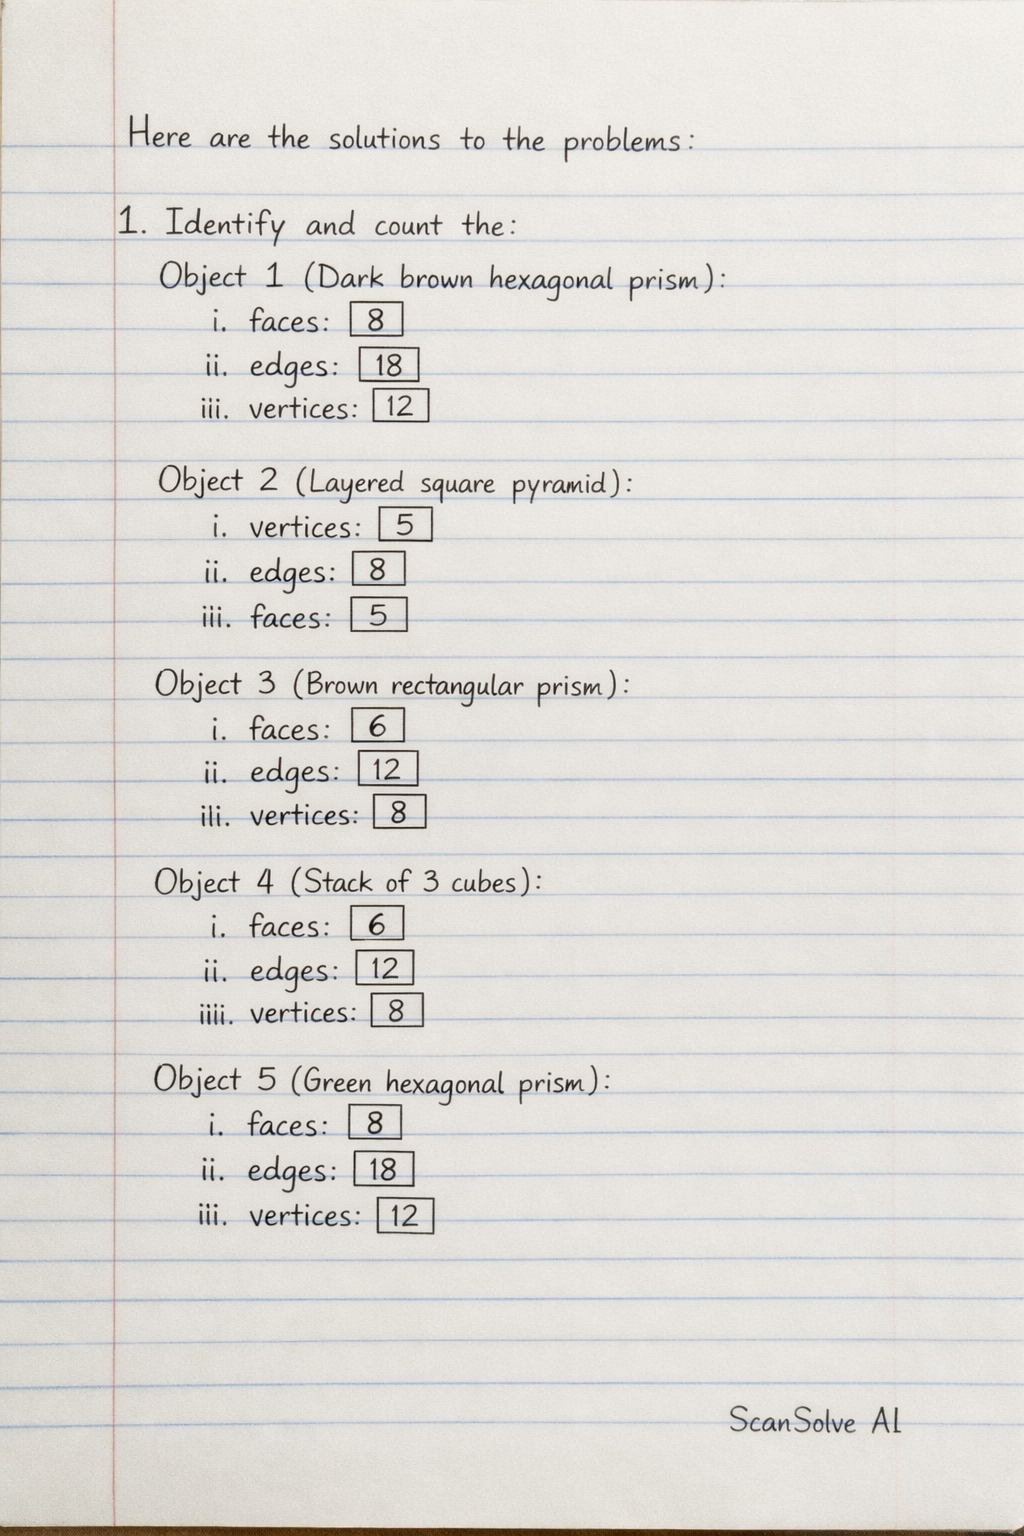 Here are the solutions to the problems:
1. Identify and count the:
Object 1 (Dark brown hexagonal prism):
i. faces: 8
ii. edges: 18
iii. vertices: 12
Object 2 (Layered square pyramid):
i. vertices: 5
ii. edges: 8
iii. faces: 5
Object 3 (Brown rectangular prism):
i. faces: 6
ii. edges: 12
ili. vertices: 8
Object 4 (Stack of 3 cubes):
i. faces: 6
ii. edges: 12
iiii. vertices: 8
Object 5 (Green hexagonal prism):
i. faces: 8
ii. edges: 18
iii. vertices: 12
ScanSolve AI